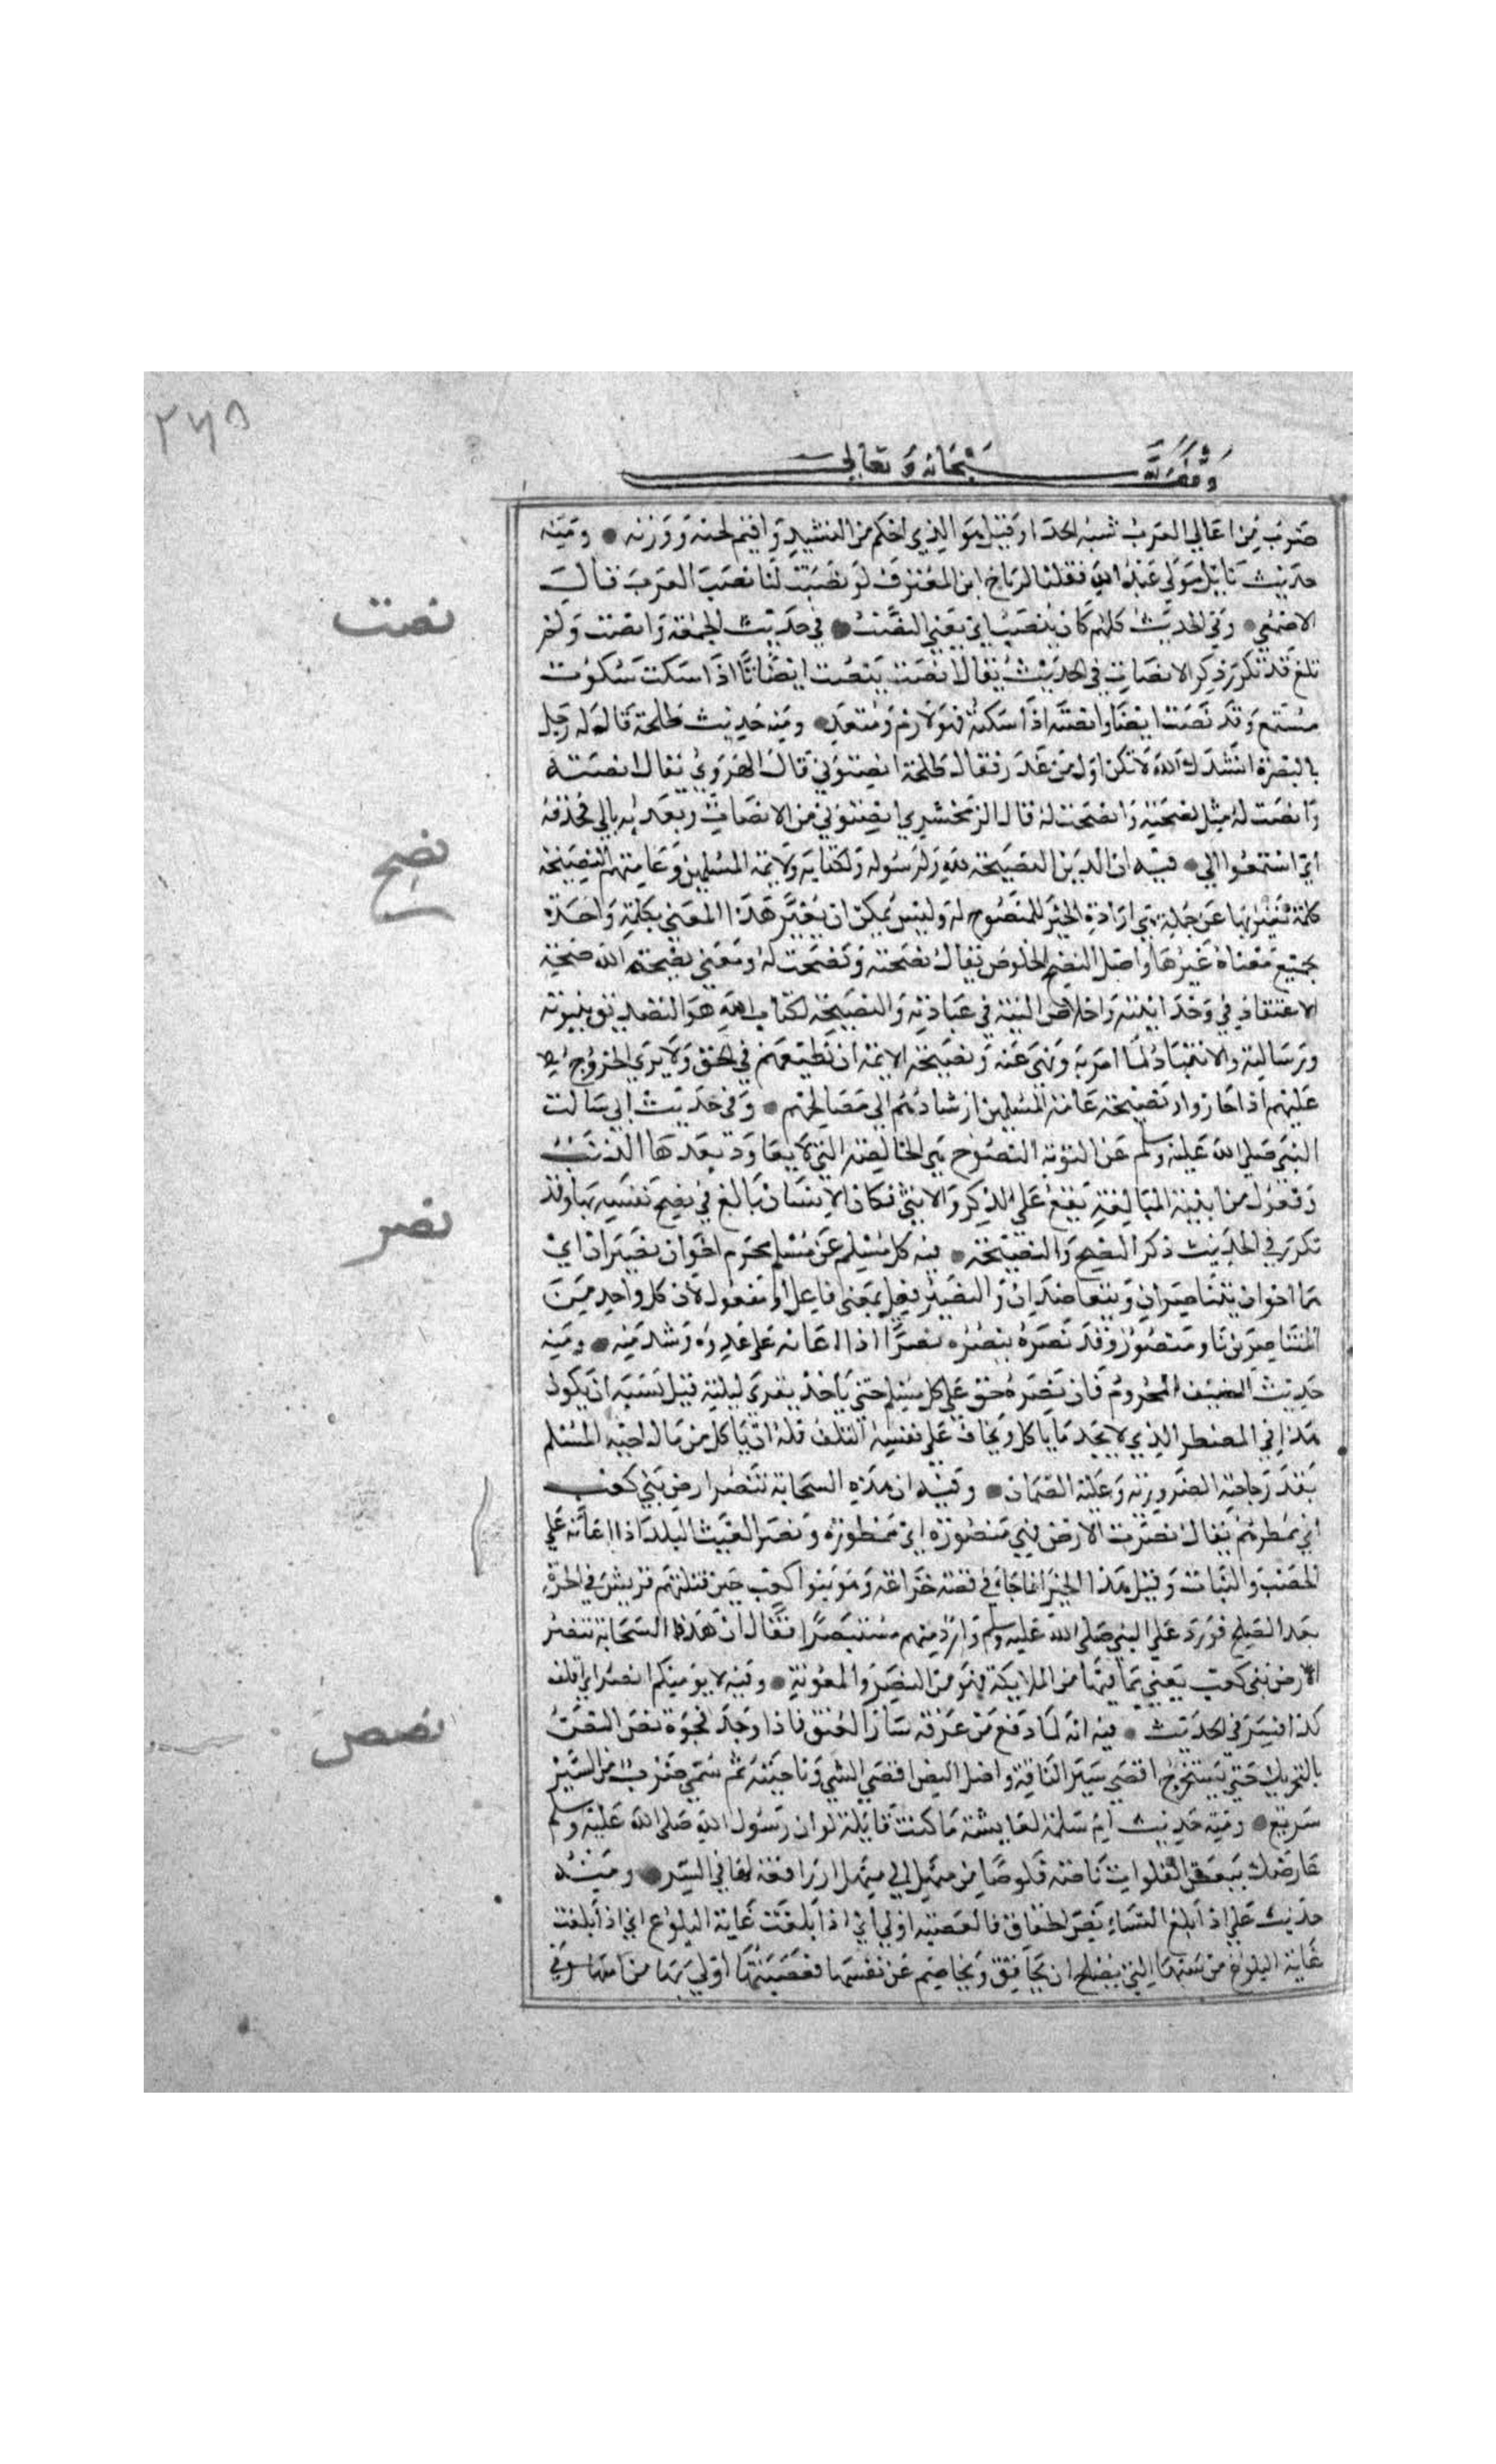 ٢٧٥
وقف لله سبحانه وتعالى
ضرب من اغاني العرب شبه الحدا وقيل هو الذي احكم من النشيد واقيم لحنه ووزنه ومنه
حديث نايل مولى عثمان فقلنا لرباح ابن المغترف لو نصبت لنا نصب العرب قال
الاصمعي وفي الحديث كلهم كان ينصب اي يغني النصب في حديث الجمعة وانصت ولم
نصت
تلغ قد تكرر ذكر الانصات في الحديث يقال انصت ينصت انصاتا اذا سكت سكوت
مستمع وقد نصت ايضا وانصته اذا اسكته فهو لازم ومتعد ومنه حديث طلحة قال له رجل
بالبصرة انشدك الله لا تكن اول من غدر فقال طلحة انصتوني قال الهروي يقال انصته
وانصت له مثل نصحته ونصحت له قال الزمخشري انصتوني من الانصات وتعديه بالى فحذفه
نصح
اي استمعوا الي فيه ان الدين النصيحة لله ولرسوله ولكتابه ولايمة المسلمين وعامتهم النصيحة
كلمة يعبر بها عن جملة هي ارادة الخير للمنصوح له وليس يمكن ان يعبر هذا المعنى بكلمة واحدة
تجمع معناه غيرها واصل النصح الخلوص يقال نصحته ونصحت له ومعنى نصيحة الله صحة
الاعتقاد في وحدانيته واخلاص النية في عبادته والنصيحة لكتاب الله هو التصديق بنبوته
ورسالته والانقياد لما امر به ونهى عنه ونصيحة الايمة ان نطيعهم في الحق ولا يرى الخروج
عليهم اذا جاروا ونصيحة عامة المسلمين ارشادهم الى مصالحهم وفي حديث ابي سالت
النبي صلى الله عليه وسلم عن التوبة النصوح هي الخالصة التي لا يعاود بعدها الذنب
وفعول من ابنية المبالغة يقع على الذكر والانثى فكان الانسان بالغ في نصح نفسه بها وقد
نصر
تكرر في الحديث ذكر النصح والنصيحة فيه كل مسلم عن مسلم محرم اخوان نصيران اي
هما اخوان يتناصران ويتعاضدان والنصير فعيل بمعنى فاعل او مفعول لان كل واحد من
المتناصرين ناصر ومنصور وقد نصره ينصره نصرا اذا اعانه على عدوه وشد منه ومنه
حديث الضيف المحروم فان نصره حق على كل مسلم حتى ياخذ بقرى ليلته قيل يشبه ان يكون
هذا في المضطر الذي لا يجد ما ياكل ويخاف على نفسه التلف فله ان ياكل من مال اخيه المسلم
بقدر حاجته الضرورية وعليه الضمان وفيه ان هذه السحابة تنصر ارض بني كعب
اي تمطرهم يقال نصرت الارض فهي منصورة اي ممطورة ونصر الغيث البلد اذا اعانه على
الخصب والنبات وقيل هذا الخبر انما جاء في قصة خزاعة وهم بنو كعب حين قتلتهم قريش في الحرم
بعد الصلح فورد على النبي صلى الله عليه وسلم وارد منهم مستنصرا فقال ان هذه السحابة تنصر
الارض بني كعب يعني بما فيها من الملايكة فهو من النصر والمعونة وفيه لا يومنكم انصر اي اقلف
نصص
كذا فسر في الحديث فيه انه لما دفع من عرفة سار العنق فاذا وجد فجوة نص النص
بالتحريك حتى يستخرج اقصى سير الناقة واصل النص اقصى الشي وغايته ثم سمي ضرب من السير
سريع ومنه حديث ام سلمة لعايشة ما كنت قايلة لو ان رسول الله صلى الله عليه وسلم
عارضك ببعض الفلوات ناصة قلوصا من منهل الى منهل اي رافعة لها في السير ومنه
حديث علي اذا بلغ النساء نص الحقاق فالعصبة اولى اي اذا بلغت غاية البلوغ اي اذا بلغت
غاية البلوغ من سنها التي يصلح ان تحاقق وتخاصم عن نفسها فعصبتها اولى بها من امها